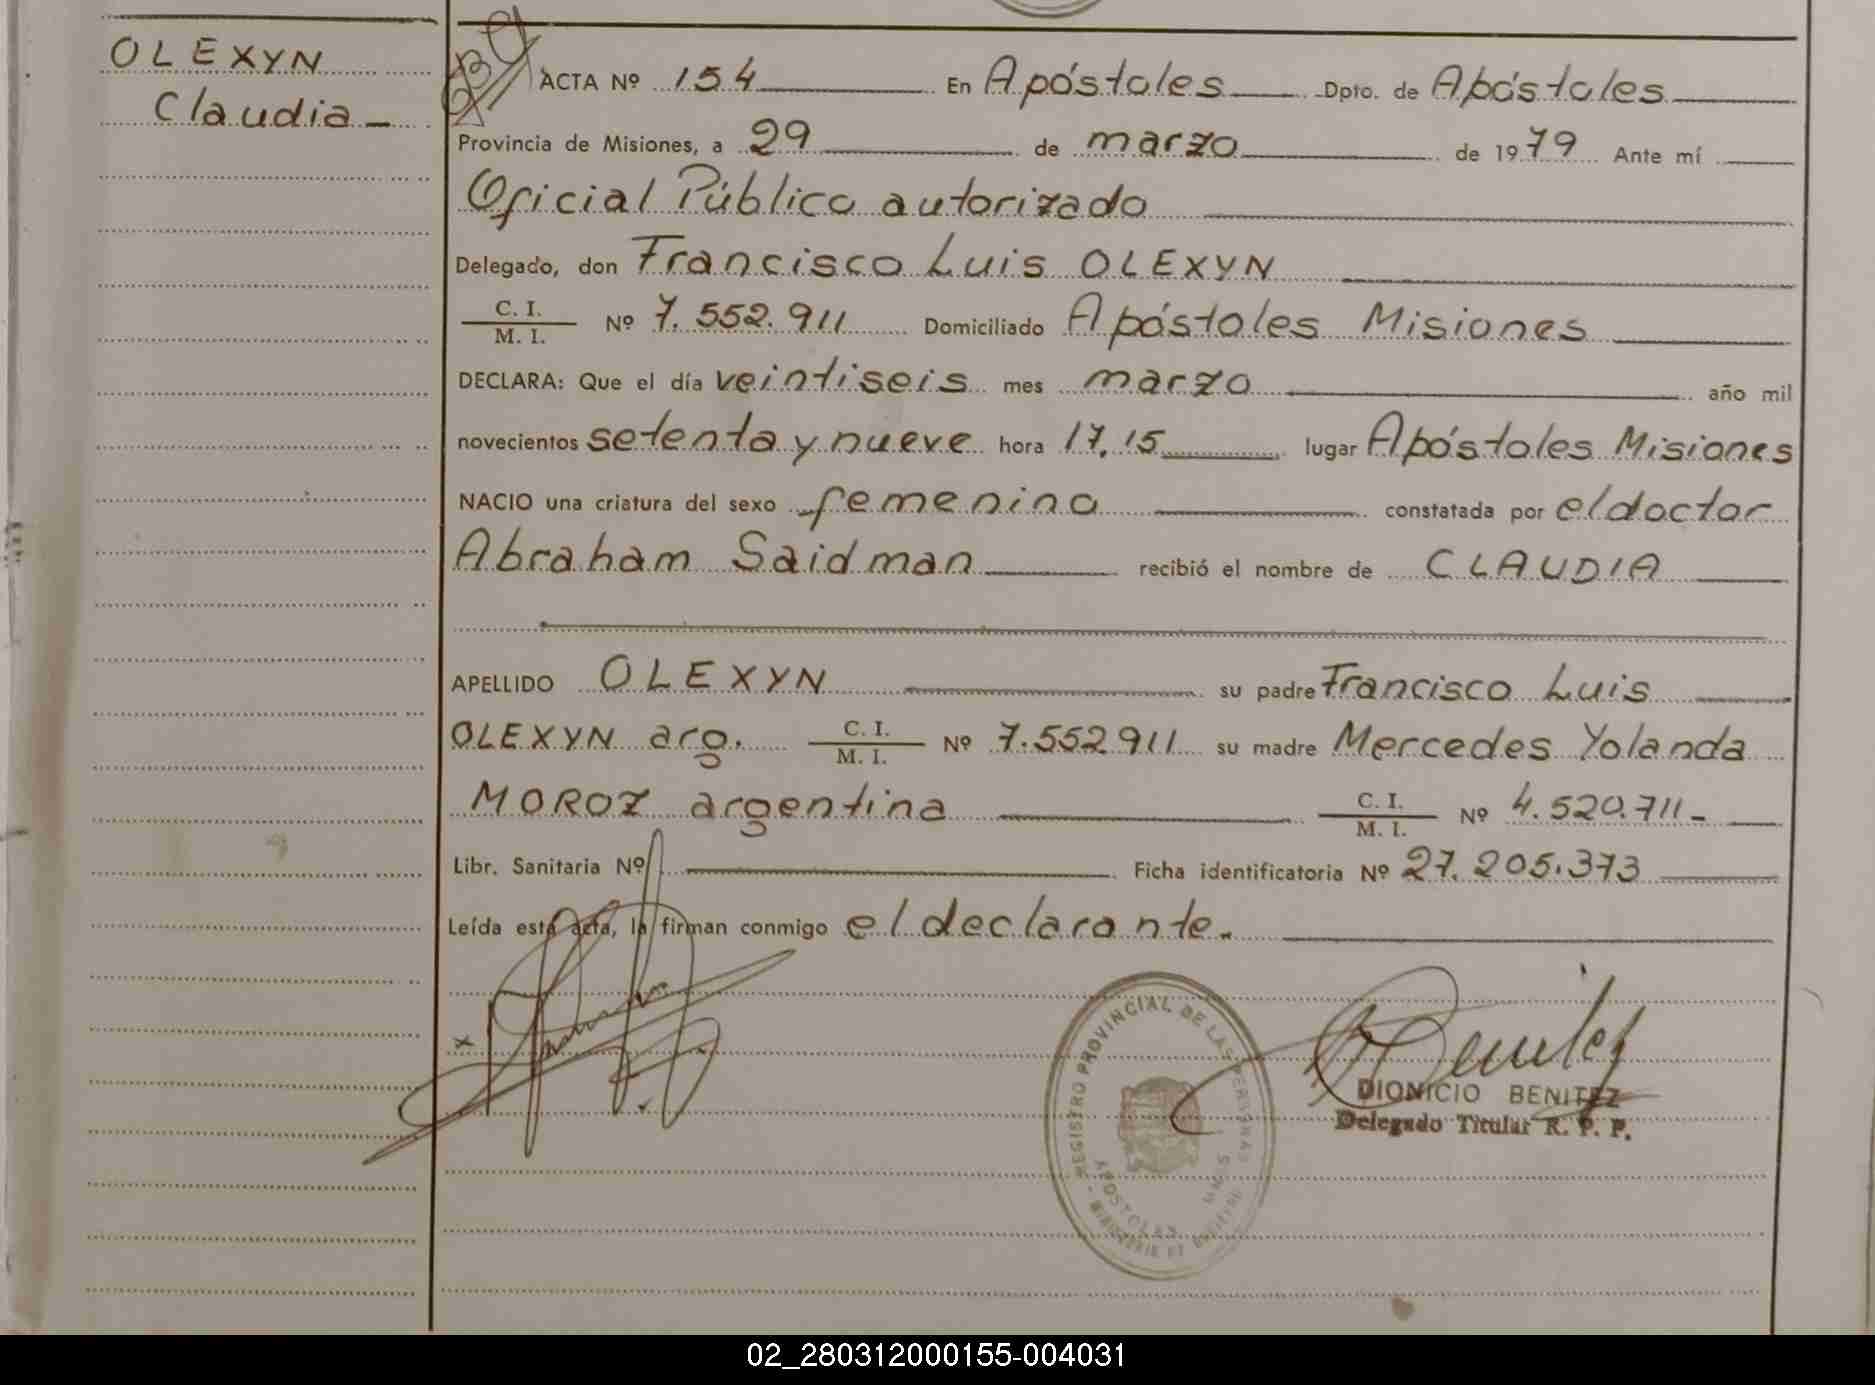 OLEXYN
Claudia
ACTA Nº 154 En Apóstoles Dpto. de Apóstoles
Provincia de Misiones, a 29 de marzo de 1979 Ante mí
Oficial Público autorizado
Delegado, don Francisco Luis OLEXYN
C. I.
M. I. Nº 7.552.911 Domiciliado Apóstoles Misiones
DECLARA: Que el día veintiseis mes marzo año mil
novecientos setenta y nueve hora 17,15 lugar Apóstoles Misiones
NACIO una criatura del sexo femenino constatada por el doctor
Abraham Saidman recibió el nombre de CLAUDIA
APELLIDO OLEXYN su padre Francisco Luis
OLEXYN arg. C. I. M. I. Nº 7.552911 su madre Mercedes Yolanda
MOROZ argentina C. I. M. I. Nº 4.520.711-
Libr. Sanitaria Nº Ficha identificatoria Nº 27.205.373
Leída esta acta, la firman conmigo el declarante.
x
REGISTRO PROVINCIAL DE LAS PERSONAS
APOSTOLES MNES
Benitez
DIONICIO BENITEZ
Delegado Titular R. P. P.
02_280312000155-004031